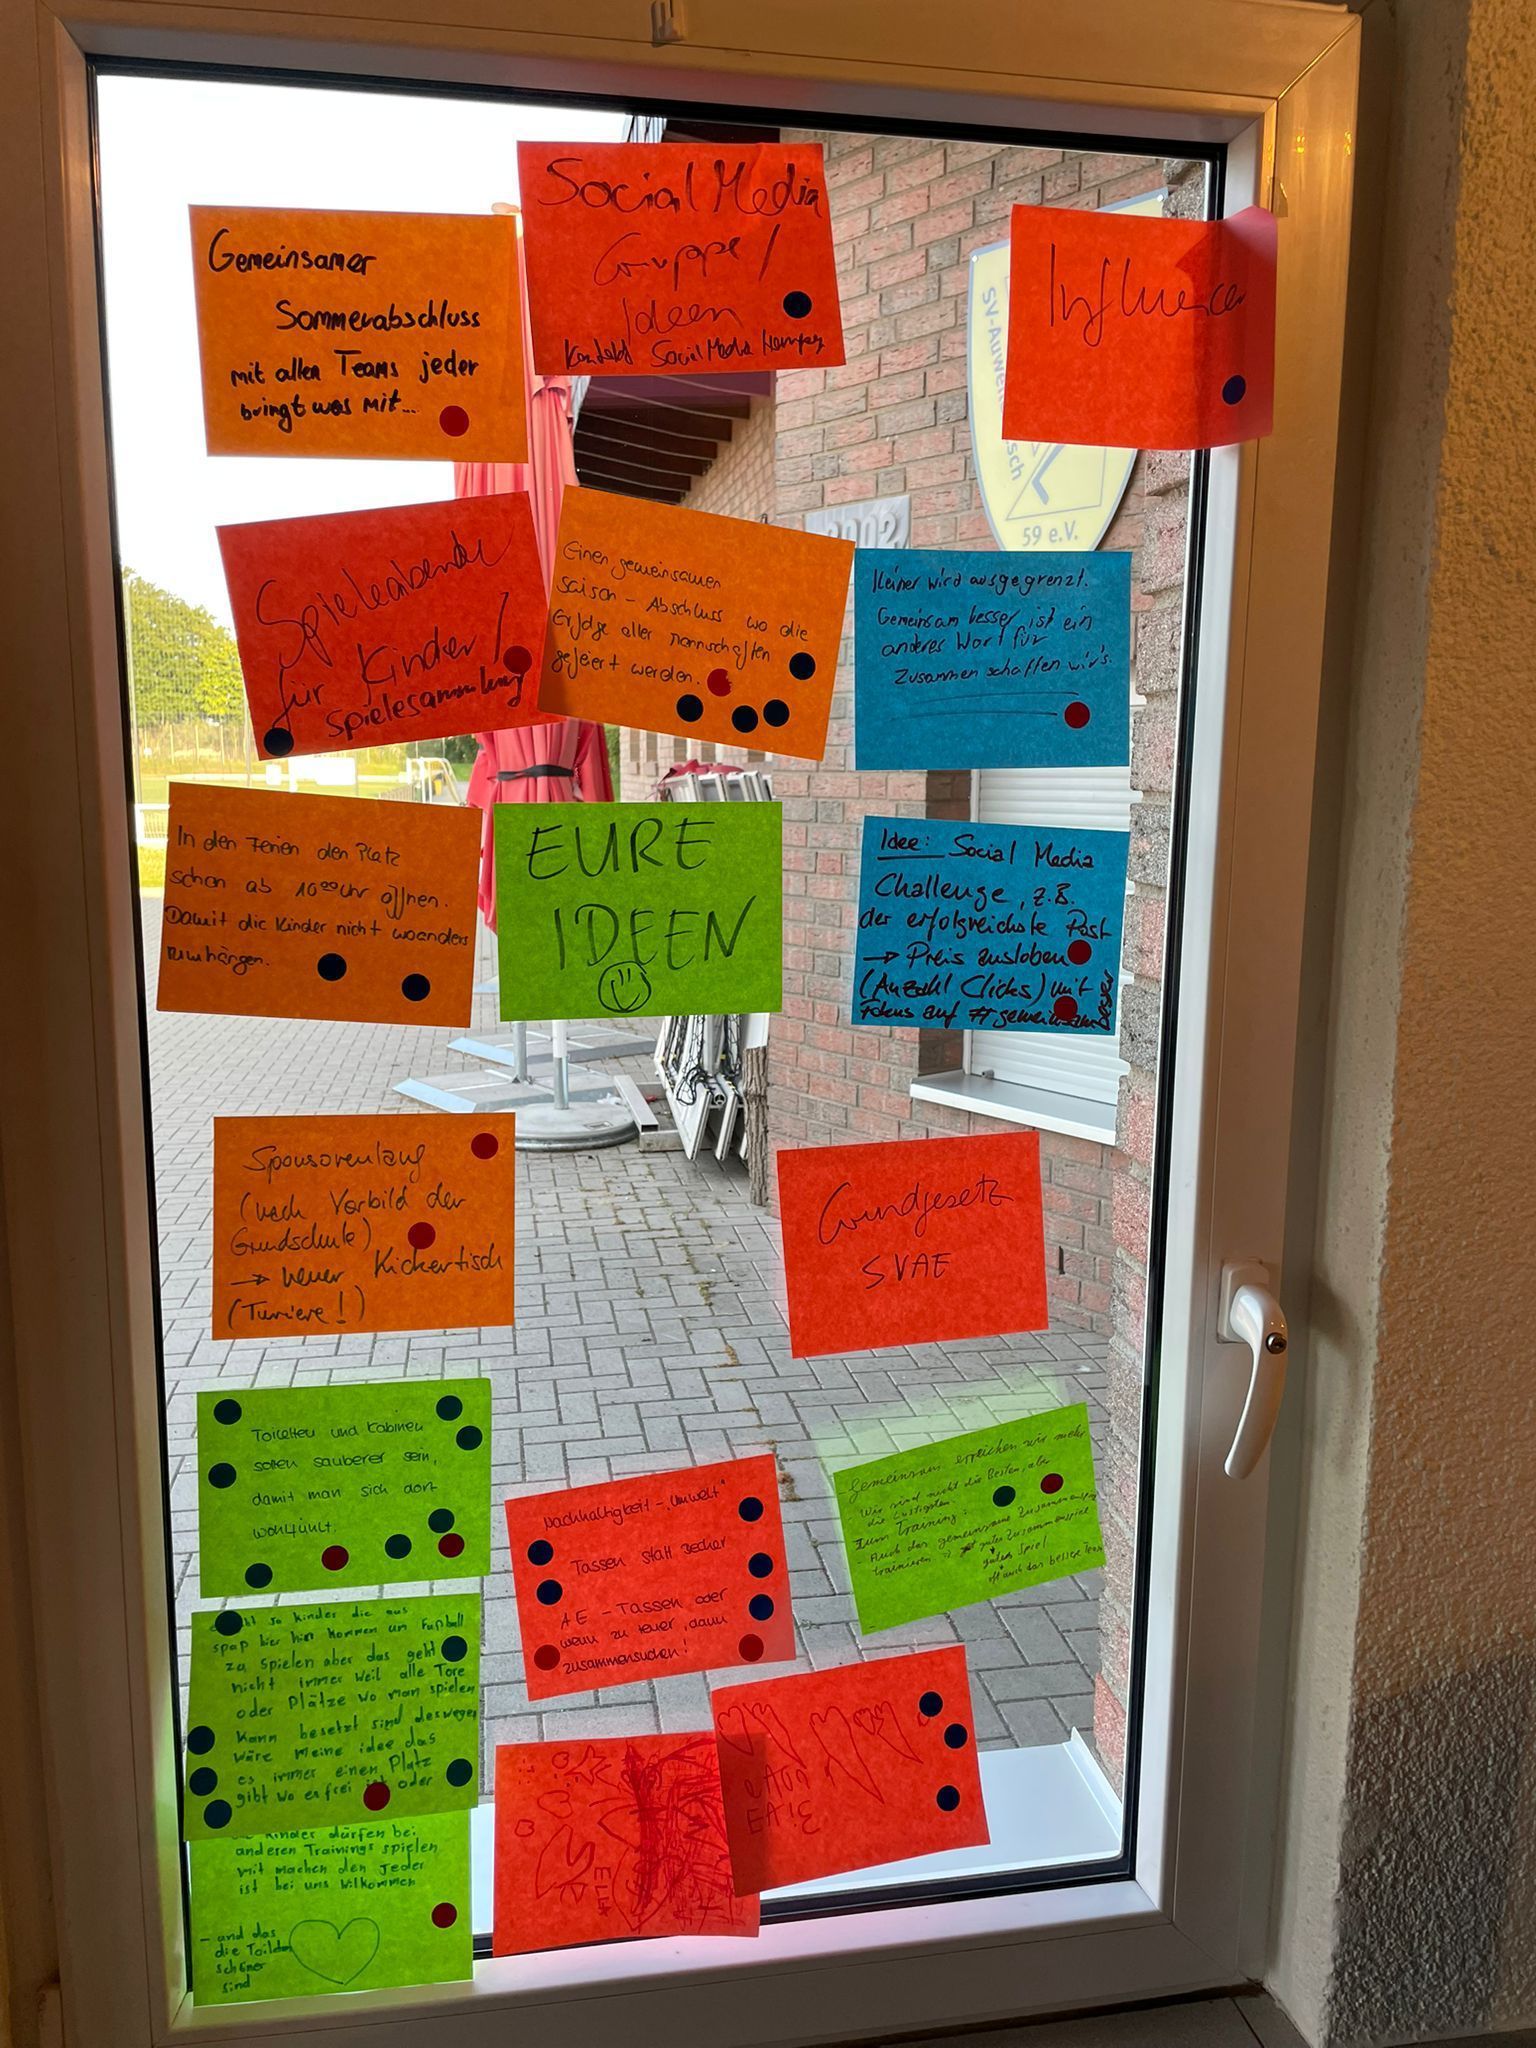 Gemeinsamer
Sommerabschluss
mit allen Teams jeder
bringt was mit...
Social Media
Gruppe /
Ideen
Social Media
Influencer
SV-Auwei
sch
59 e.V.
2002
Spieleabende
für Kinder /
Spielesammlung
Einen gemeinsamen
Saison - Abschluss wo die
Erfolge aller Mannschaften
gefeiert werden.
Keiner wird ausgegrenzt.
Gemeinsam besser ist ein
anderes Wort für
Zusammen schaffen wir's.
In den Ferien den Platz
schon ab 10⁰⁰ Uhr öffnen.
Damit die Kinder nicht woanders
rumhängen.
EURE
IDEEN
Idee: Social Media
Challenge, z.B.
der erfolgreichste Post
→ Preis ausloben
(Anzahl Clicks) mit
Fokus auf #gemeinsambesser
Sponsorenlauf
(nach Vorbild der
Grundschule)
→ neuer Kickertisch
(Turniere!)
Grundgesetz
SVAE
Toiletten und Kabinen
sollen sauberer sein,
damit man sich dort
wohlfühlt.
Nachhaltigkeit - "Umwelt"
Tassen statt Becher
AE - Tassen oder
wenn zu teuer, dann
zusammensuchen!
Gemeinsam erreichen wir mehr
- Wir sind nicht die Besten, aber
die Lustigsten.
Zum Training:
- Auch das gemeinsame Zusammenspiel
trainieren → gutes Zusammenspiel
gutes Spiel
oft auch das bessere Team
so kinder die aus
spaß hier hin kommen um Fußball
zu spielen aber das geht
nicht immer weil alle Tore
oder Plätze wo man spielen
kann besetzt sind deswegen
wäre meine idee das
es immer einen Platz
gibt wo er frei ist oder
kinder dürfen bei
anderen Trainings spielen
mit machen den jeder
ist bei uns Wilkommen
- und das
die Toiletten
schöner
sind